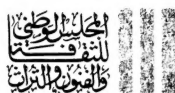 المجلس الوطني
للثقافة
والفنون والتراث